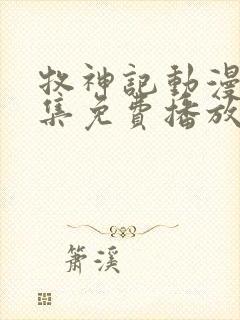 牧神記動漫
集免費播放
簫溪